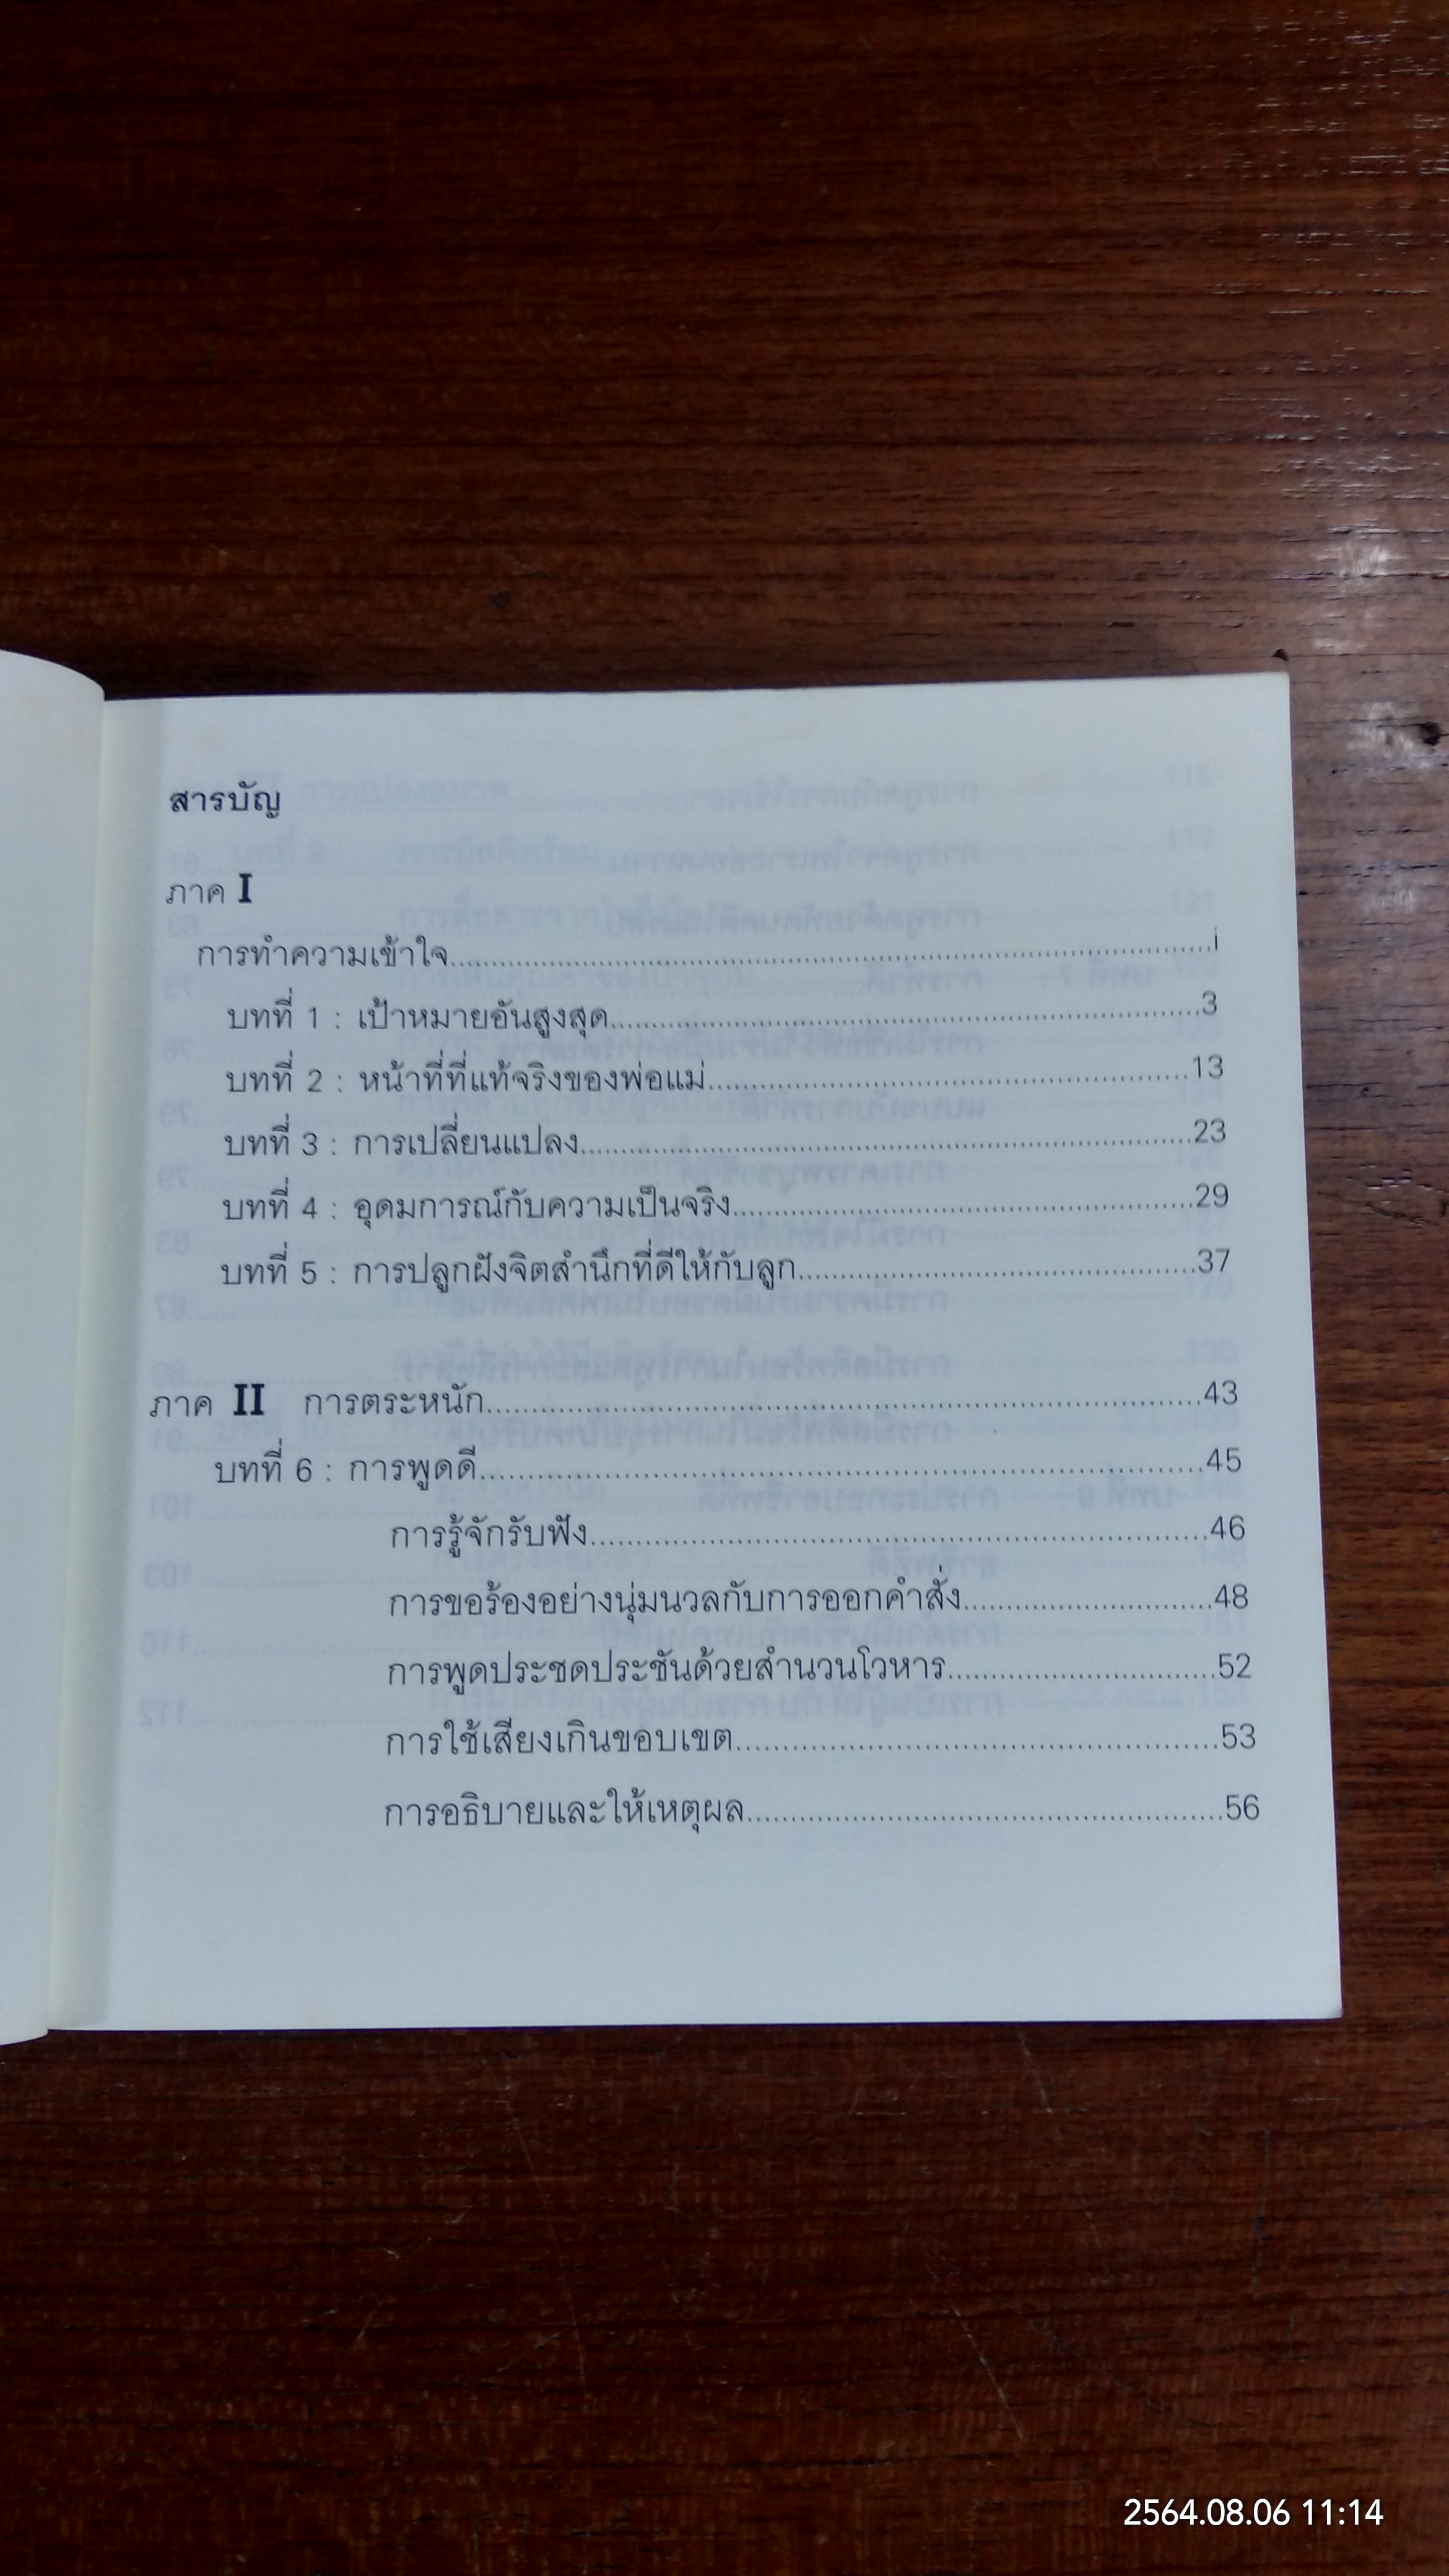 สารบัญ
ภาค I
การทำความเข้าใจ....................i
บทที่ 1 : เป้าหมายอันสูงสุด....................3
บทที่ 2 : หน้าที่ที่แท้จริงของพ่อแม่....................13
บทที่ 3 : การเปลี่ยนแปลง....................23
บทที่ 4 : อุดมการณ์กับความเป็นจริง....................29
บทที่ 5 : การปลูกฝังจิตสำนึกที่ดีให้กับลูก....................37
ภาค II การตระหนัก....................43
บทที่ 6 : การพูดดี....................45
การรู้จักรับฟัง....................46
การขอร้องอย่างนุ่มนวลกับการออกคำสั่ง....................48
การพูดประชดประชันด้วยสำนวนโวหาร....................52
การใช้เสียงเกินขอบเขต....................53
การอธิบายและให้เหตุผล....................56
2564.08.06 11:14